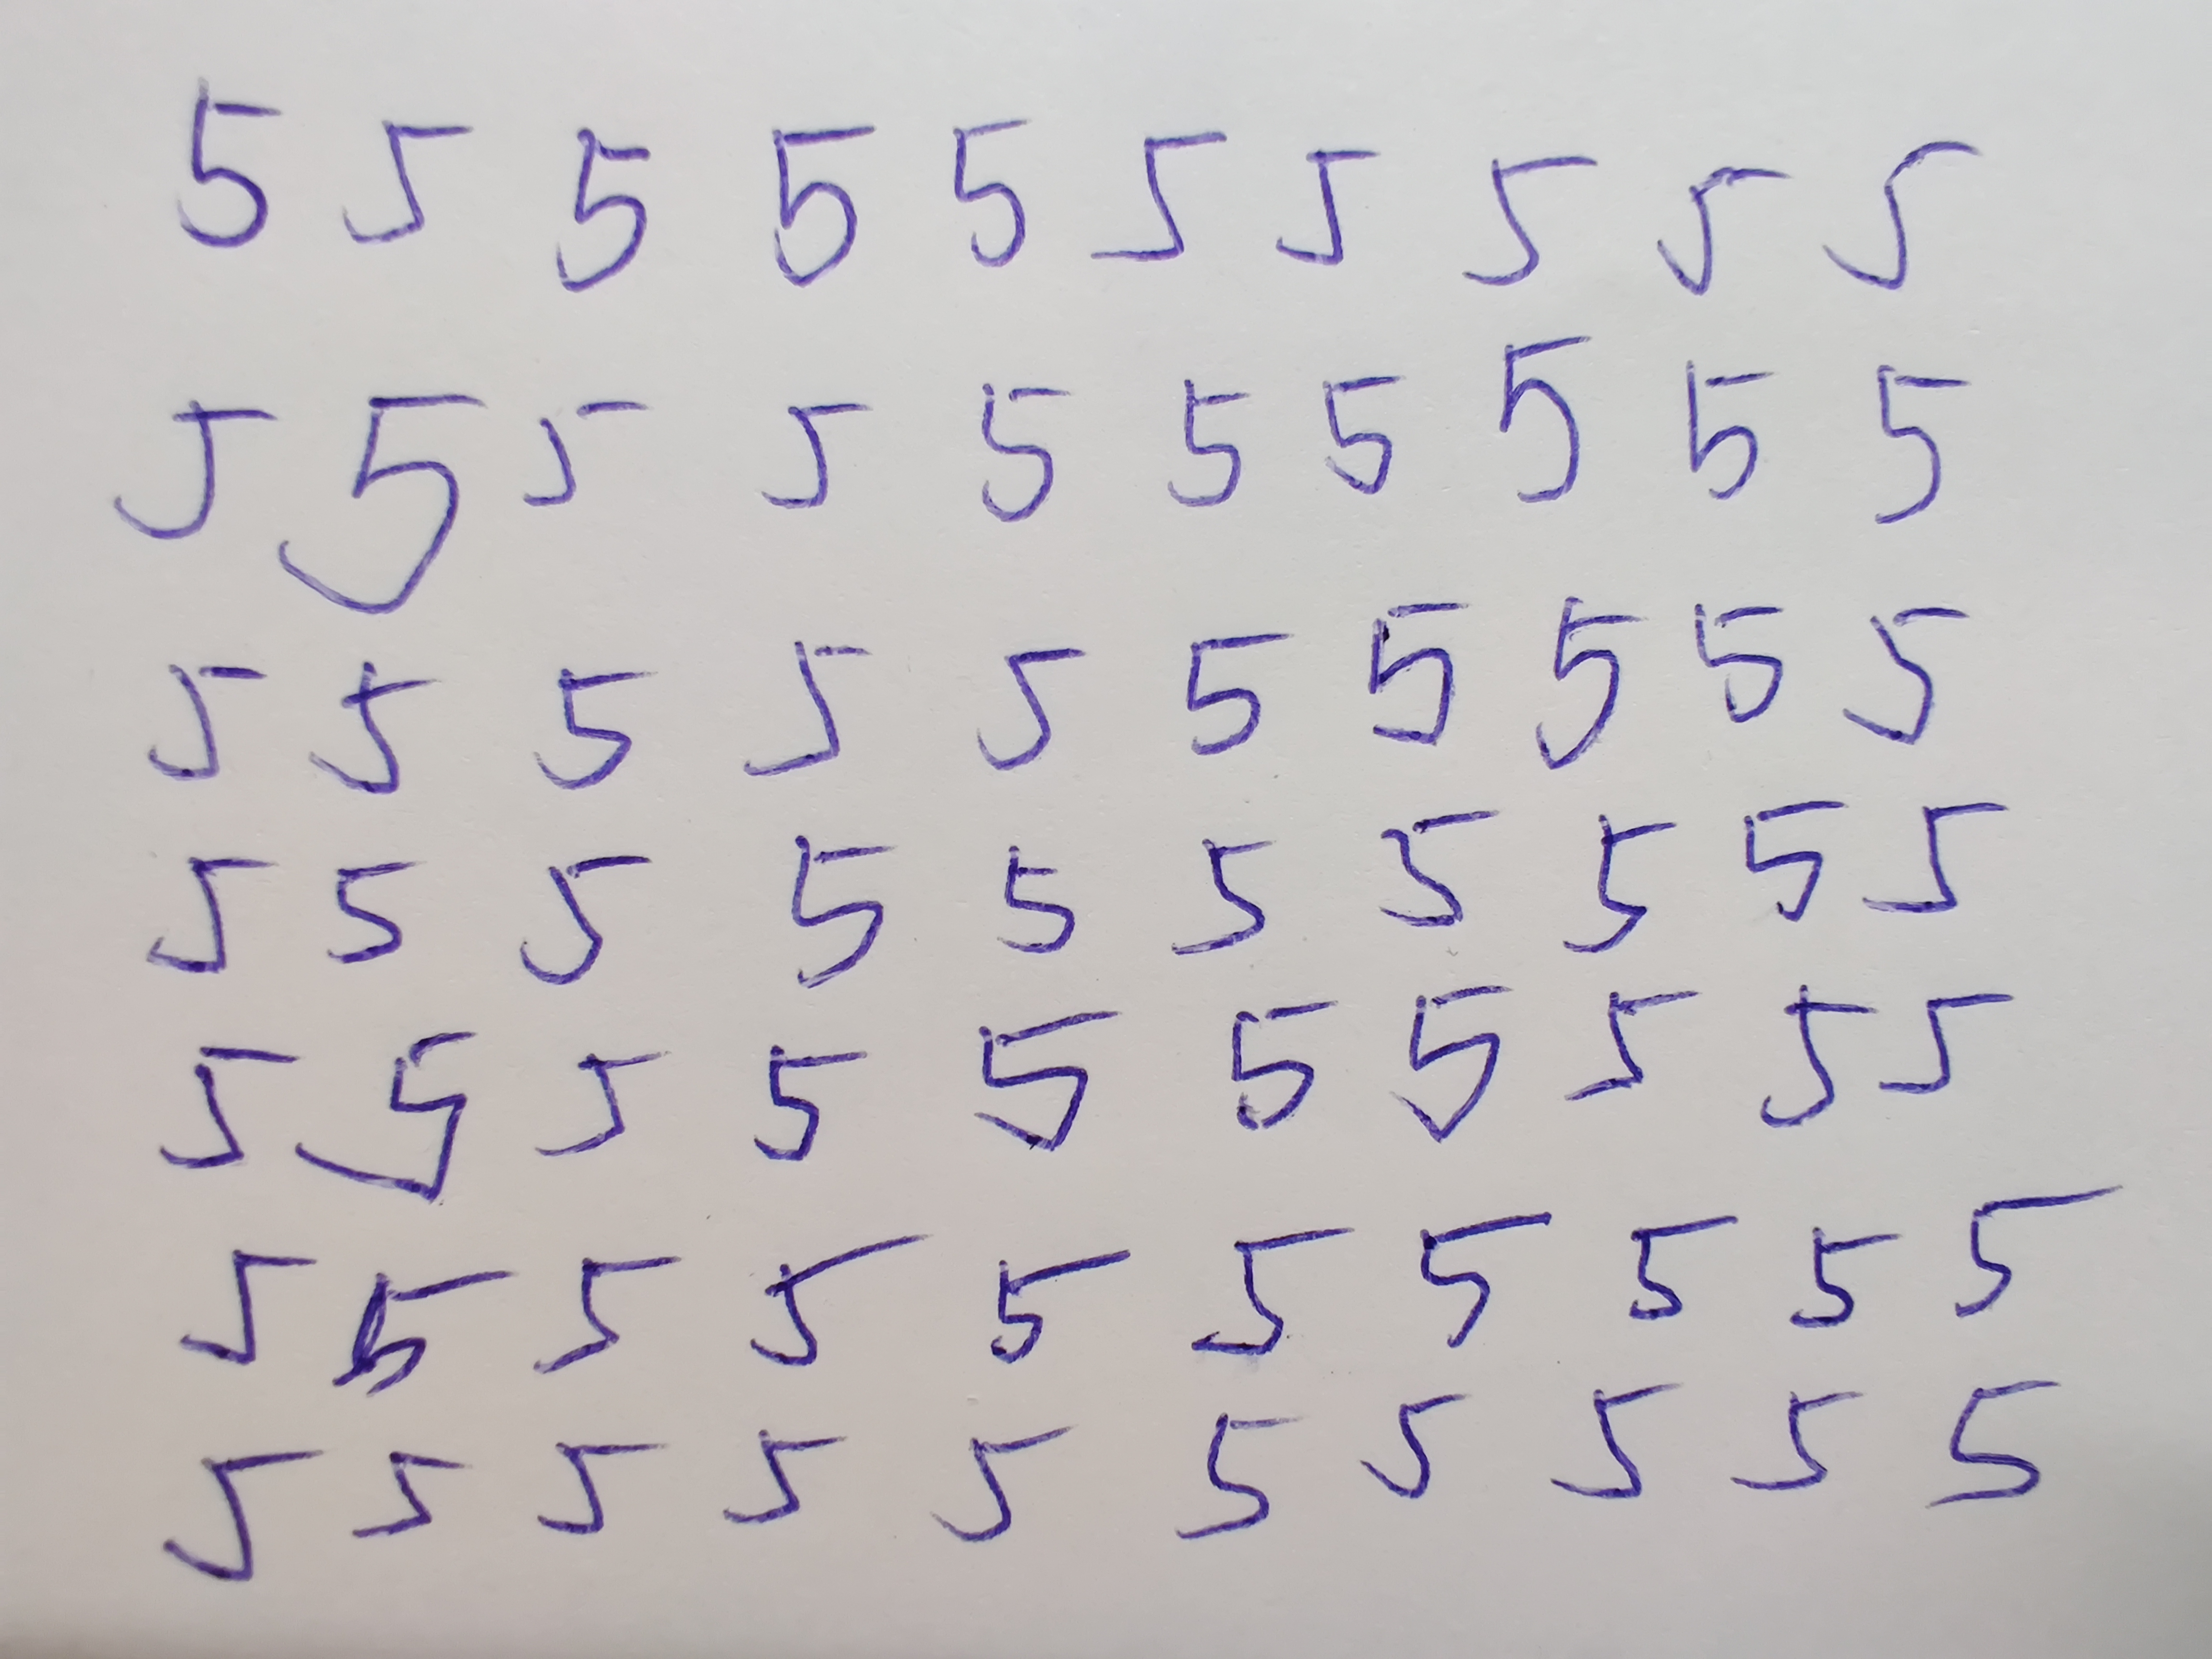 5 5 5 5 5 5 5 5 5 5
5 5 5 5 5 5 5 5 5 5
5 5 5 5 5 5 5 5 5 5
5 5 5 5 5 5 5 5 5 5
5 5 5 5 5 5 5 5 5 5
5 5 5 5 5 5 5 5 5 5
5 5 5 5 5 5 5 5 5 5